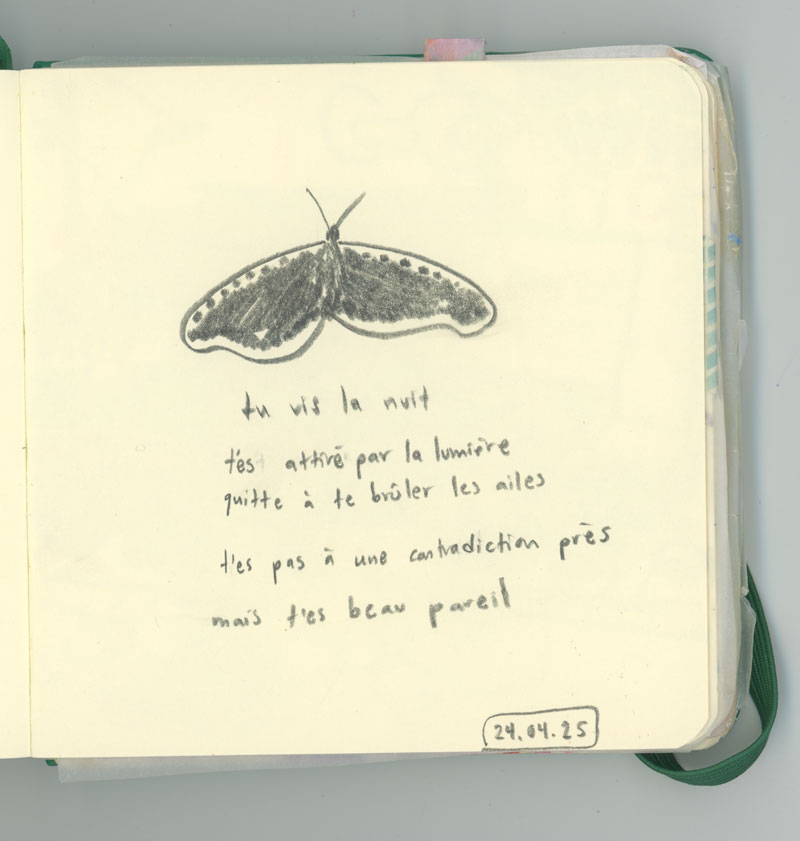 tu vis la nuit
t'es attiré par la lumière
quitte à te brûler les ailes
t'es pas à une contradiction près
mais t'es beau pareil
24.04.25